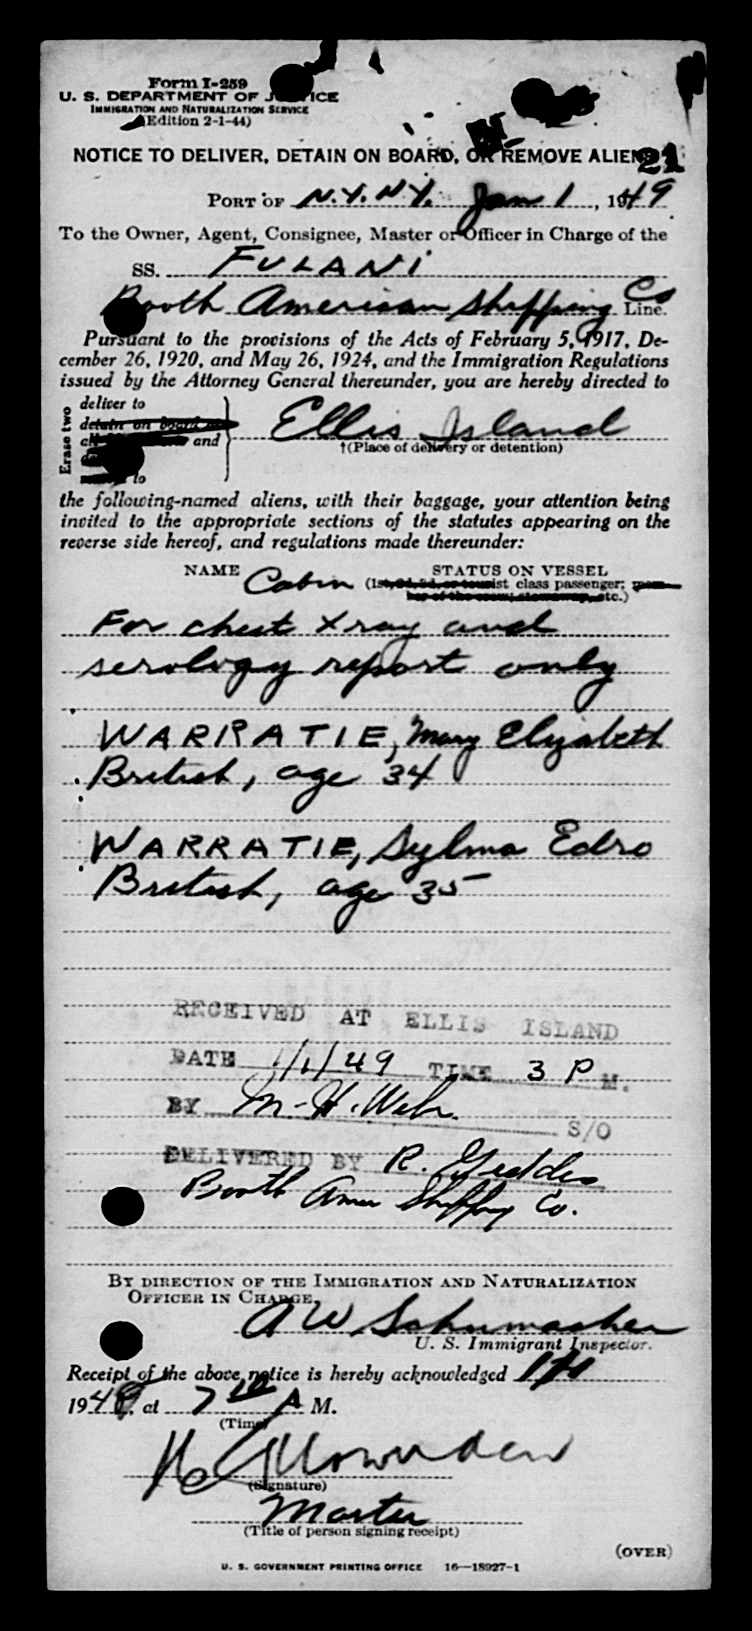 Form I-259
U. S. DEPARTMENT OF JUSTICE
IMMIGRATION AND NATURALIZATION SERVICE
(Edition 2-1-44)
NOTICE TO DELIVER, DETAIN ON BOARD, OR REMOVE ALIENS
21
PORT OF N.Y. N.Y. Jan 1, 1949
To the Owner, Agent, Consignee, Master or Officer in Charge of the
SS. FULANI
Booth American Shipping Co Line.
Pursuant to the provisions of the Acts of February 5, 1917, De-
cember 26, 1920, and May 26, 1924, and the Immigration Regulations
issued by the Attorney General thereunder, you are hereby directed to
Erase two
deliver to
detain on board
and
to
Ellis Island
†(Place of delivery or detention)
the following-named aliens, with their baggage, your attention being
invited to the appropriate sections of the statutes appearing on the
reverse side hereof, and regulations made thereunder:
NAME STATUS ON VESSEL
Cabin (1st, 2d, 3d, or tourist class passenger; mem-
ber of the crew; stowaway, etc.)
For chest Xray and
serology report only
WARRATIE, Mary Elizabeth
British, age 34
WARRATIE, Sylma Edro
British, age 35
RECEIVED AT ELLIS ISLAND
DATE 1/1/49 TIME 3 P M.
BY M. H. Web. S/O
DELIVERED BY R. Geddes
Booth Amer Shipping Co.
BY DIRECTION OF THE IMMIGRATION AND NATURALIZATION
OFFICER IN CHARGE,
A W Schumacher
U. S. Immigrant Inspector.
Receipt of the above notice is hereby acknowledged
1949, at 7 10 A M.
(Time)
(Signature)
Master
(Title of person signing receipt)
(OVER)
U. S. GOVERNMENT PRINTING OFFICE 16—18927-1